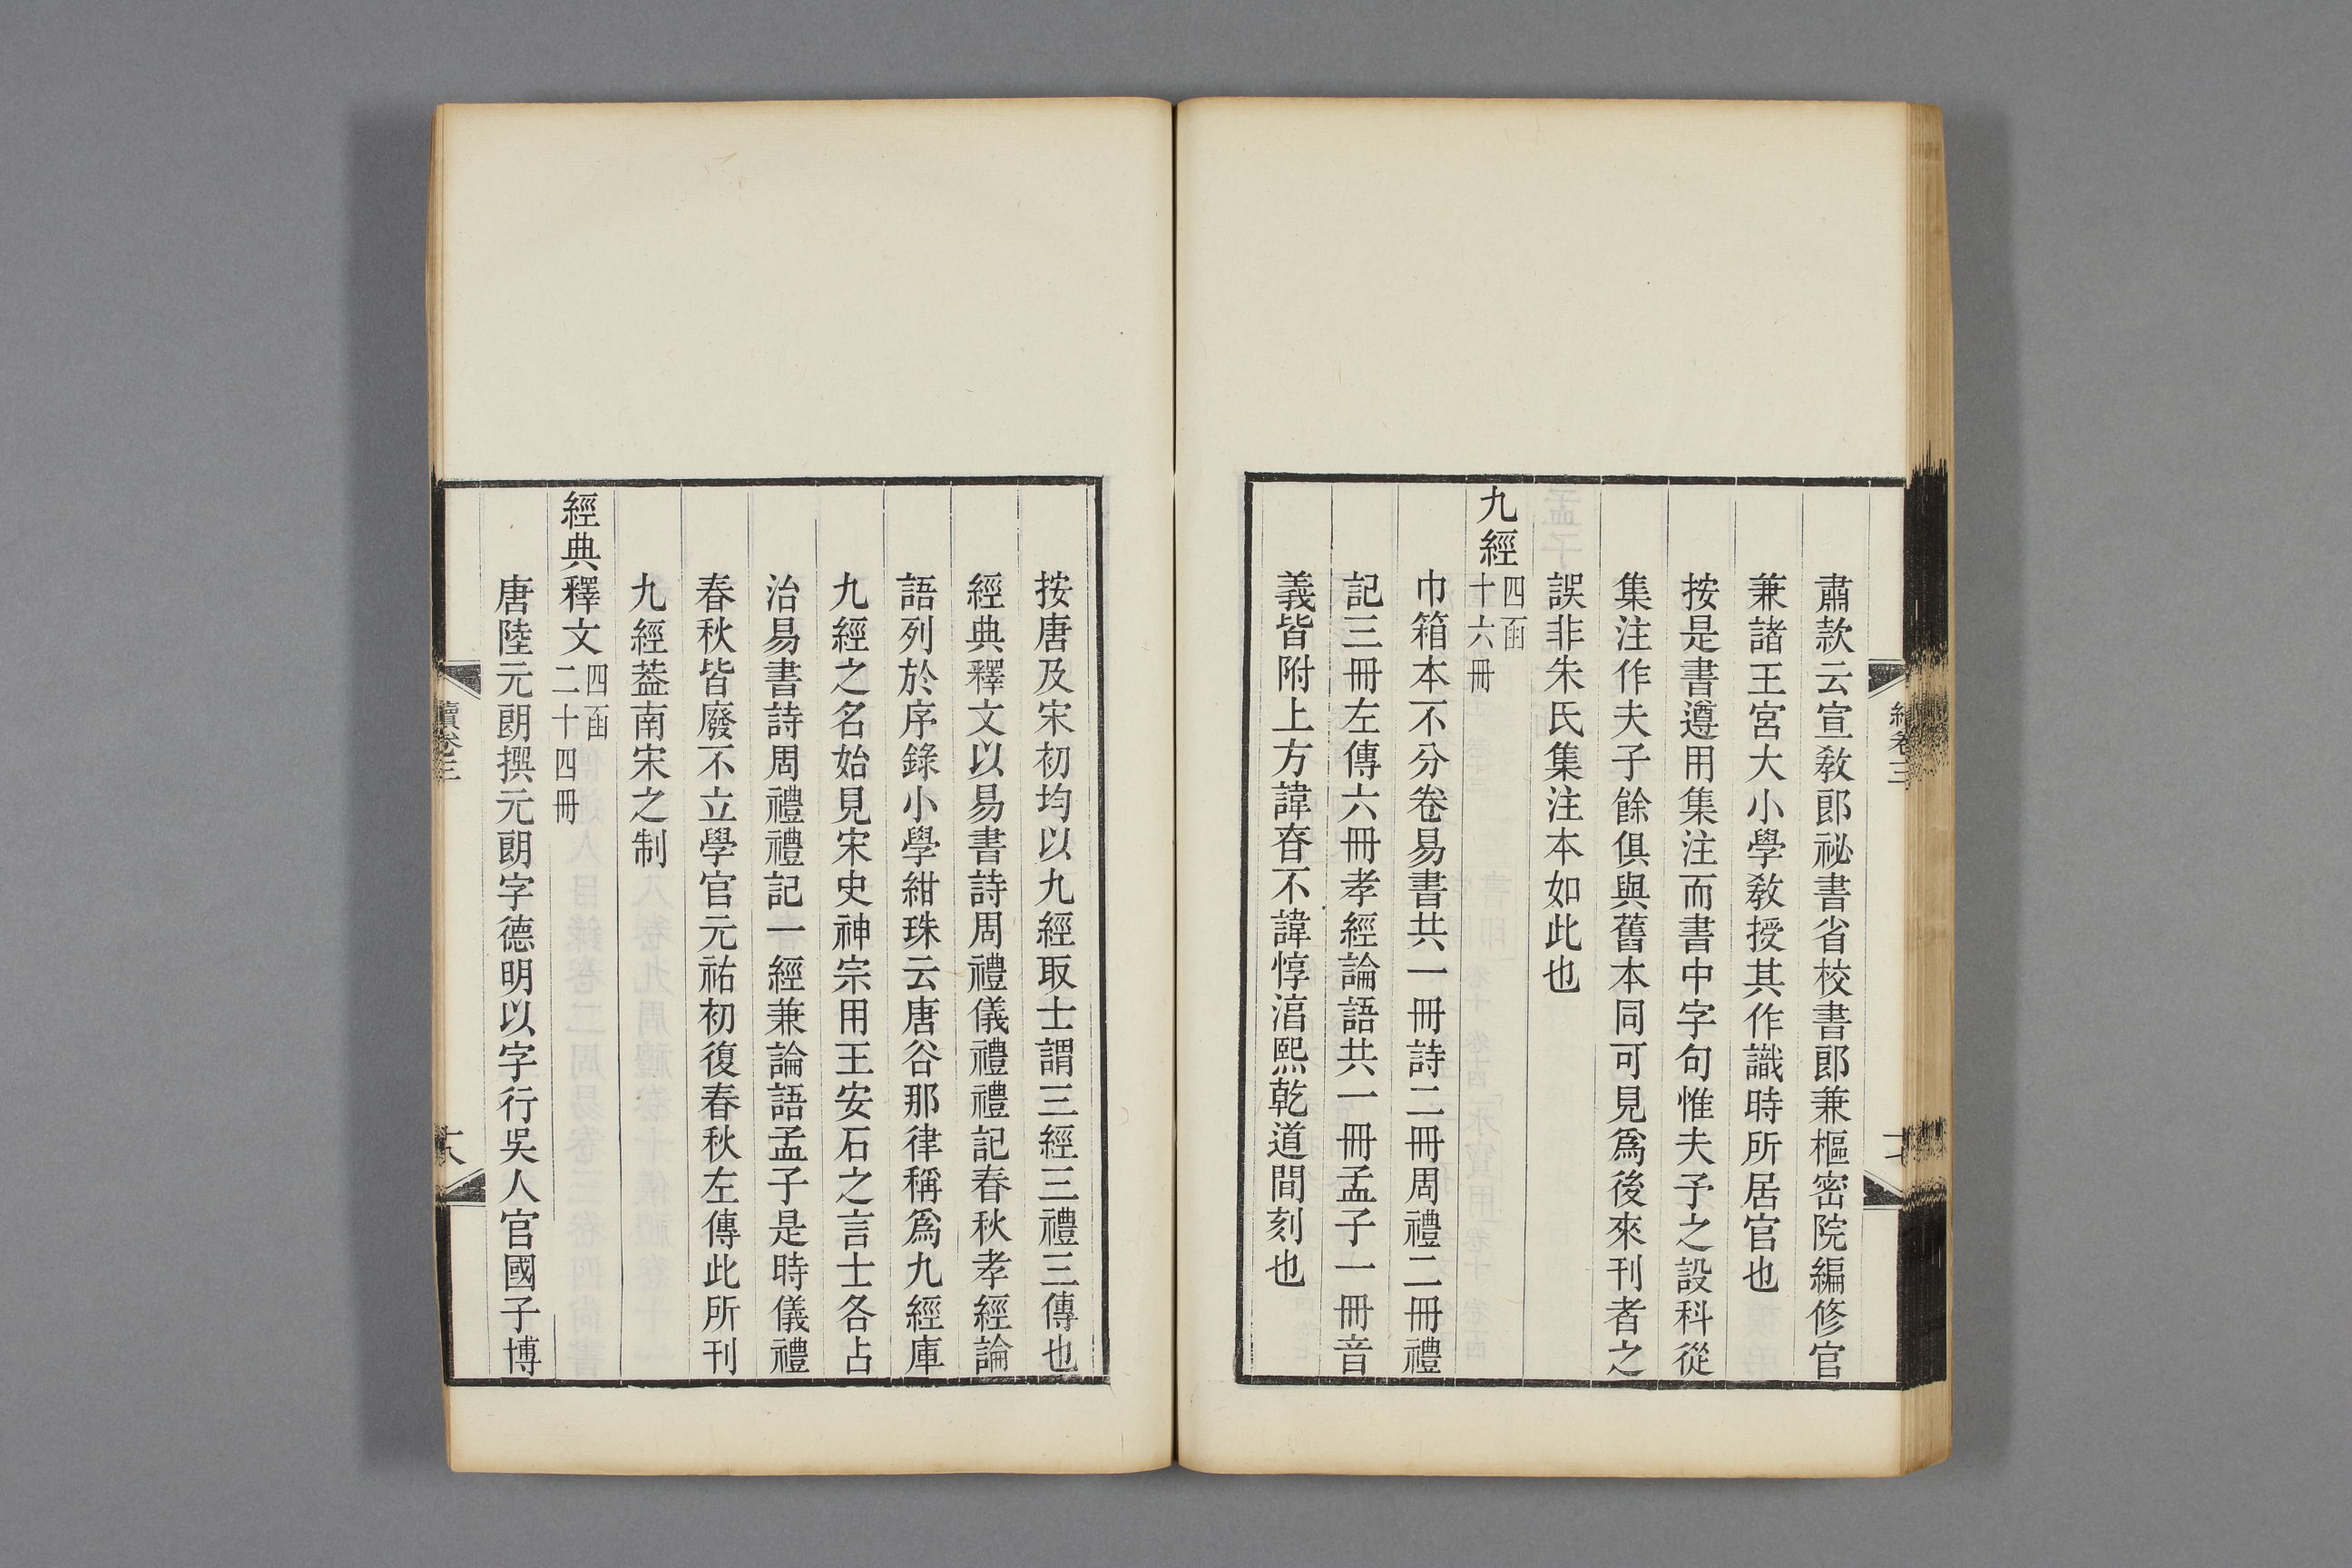 肅款云宣敎郎祕書省校書郎兼樞密院編修官
兼諸王宮大小學敎授其作識時所居官也
按是書遵用集注而書中字句惟夫子之設科從
集注作夫子餘俱與舊本同可見爲後來刊者之
誤非朱氏集注本如此也
九經四函
十六冊
巾箱本不分卷易書共一冊詩二冊周禮二冊禮
記三冊左傳六冊孝經論語共一冊孟子一冊音
義皆附上方諱昚不諱惇湻熙乾道間刻也
按唐及宋初均以九經取士謂三經三禮三傳也
經典釋文以易書詩周禮儀禮禮記春秋孝經論
語列於序錄小學紺珠云唐谷那律稱爲九經庫
九經之名始見宋史神宗用王安石之言士各占
治易書詩周禮禮記一經兼論語孟子是時儀禮
春秋皆廢不立學官元祐初復春秋左傳此所刊
九經葢南宋之制
經典釋文四函
二十四冊
唐陸元朗撰元朗字德明以字行吳人官國子博
續卷三
十八